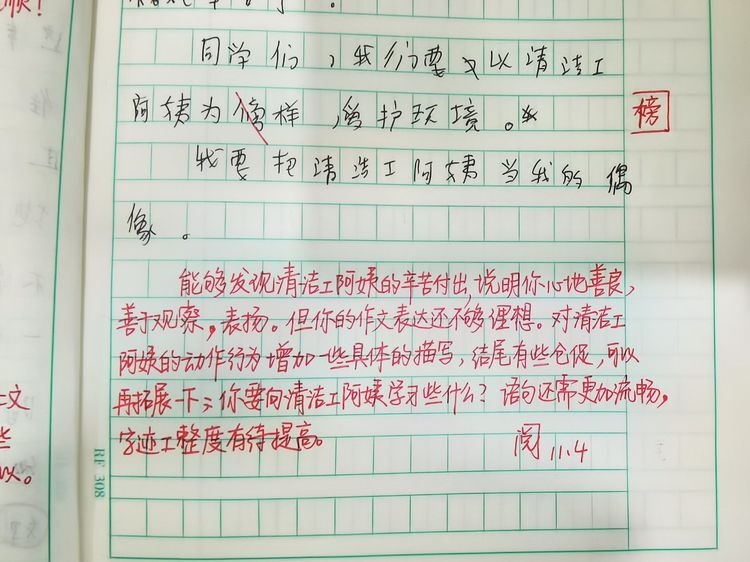 同学们，我们要以清洁工
阿姨为像样，爱护环境。
榜
我要把清洁工阿姨当我的偶
像。
能够发现清洁工阿姨的辛苦付出，说明你心地善良，
善于观察，表扬。但你的作文表达还不够理想。对清洁工
阿姨的动作行为增加一些具体的描写，结尾有些仓促，可以
再拓展一下：你要向清洁工阿姨学习些什么？语句还需更加流畅，
字迹工整度有待提高。
阅 11.4
文
些
以。
RF 308